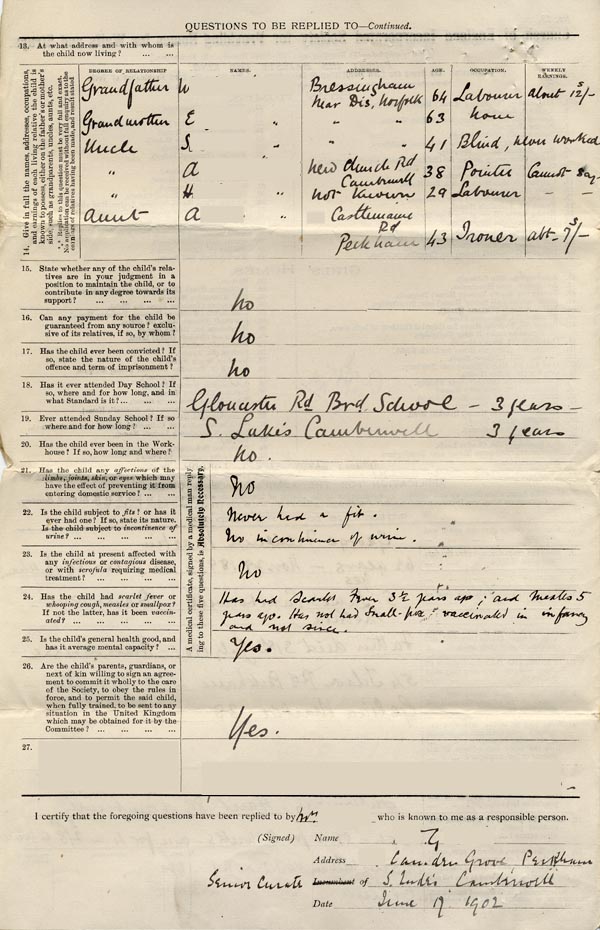 QUESTIONS TO BE REPLIED TO—Continued.
13. At what address and with whom is
the child now living? ... ...
14. Give in full the names, addresses, occupations,
and earnings of each living relative the child is
known to possess, either on the father's or mother's
side, such as grandparents, uncles, aunts, etc.
DEGREE OF RELATIONSHIP NAMES. ADDRESSES. AGE. OCCUPATION. WEEKLY EARNINGS.
Grandfather W " Bressingham
Near Dis, Norfolk 64 Labourer about 12/-
Grandmother E " " " 63 home
Uncle S " " " 41 Blind, never worked
" A " New Church Rd
Camberwell 38 Pointer Cannot say
" H " not known 29 Labourer — —
Aunt A " Castlemaine
Rd
Peckham 43 Ironer abt 7/-
15. State whether any of the child's rela-
tives are in your judgment in a
position to maintain the child, or to
contribute in any degree towards its
support? ... ... ... ...
No
16. Can any payment for the child be
guaranteed from any source? exclu-
sive of its relatives, if so, by whom?
No
17. Has the child ever been convicted? If
so, state the nature of the child's
offence and term of imprisonment?
No
18. Has it ever attended Day School? If
so, where and for how long, and in
what Standard is it? ... ...
Gloucester Rd Brd School — 3 years —
19. Ever attended Sunday School? If so
where and for how long? ... ...
S. Luke's Camberwell 3 years
20. Has the child ever been in the Work-
house? If so, how long and where?
No.
A medical certificate, signed by a medical man reply-
ing to these five questions, is Absolutely Necessary.
21. Has the child any affections of the
limbs, joints, skin, or eyes which may
have the effect of preventing it from
entering domestic service? ... ...
No
22. Is the child subject to fits? or has it
ever had one? If so, state its nature.
Is the child subject to incontinence of
urine? ... ... ... ...
Never had a fit.
No incontinence of urine.
23. Is the child at present affected with
any infectious or contagious disease,
or with scrofula requiring medical
treatment? ... ... ... ...
No
24. Has the child had scarlet fever or
whooping cough, measles or smallpox?
If not the latter, has it been vaccin-
ated? ... ... ... ...
Has had Scarlet Fever 3½ years ago; and measles 5
years ago. Has not had Small-pox vaccinated in infancy
and not since.
25. Is the child's general health good, and
has it average mental capacity? ...
Yes.
26. Are the child's parents, guardians, or
next of kin willing to sign an agree-
ment to commit it wholly to the care
of the Society, to obey the rules in
force, and to permit the said child,
when fully trained, to be sent to any
situation in the United Kingdom
which may be obtained for it by the
Committee? ... ... ... ...
Yes.
27.
I certify that the foregoing questions have been replied to by Mrs who is known to me as a responsible person.
(Signed) Name
Address Camden Grove Peckham
Senior Curate Incumbent of S. Luke's Camberwell
Date June 19 1902